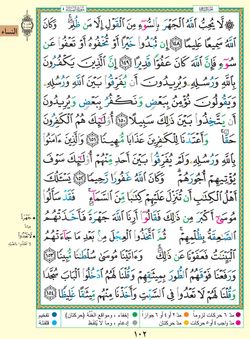 لَّا يُحِبُّ اللَّهُ الْجَهْرَ بِالسُّوءِ مِنَ الْقَوْلِ إِلَّا مَن ظُلِمَ وَكَانَ
اللَّهُ سَمِيعًا عَلِيمًا ١٤٨ إِن تُبْدُوا خَيْرًا أَوْ تُخْفُوهُ أَوْ تَعْفُوا عَن
سُوءٍ فَإِنَّ اللَّهَ كَانَ عَفُوًّا قَدِيرًا ١٤٩ إِنَّ الَّذِينَ يَكْفُرُونَ
بِاللَّهِ وَرُسُلِهِ وَيُرِيدُونَ أَن يُفَرِّقُوا بَيْنَ اللَّهِ وَرُسُلِهِ
وَيَقُولُونَ نُؤْمِنُ بِبَعْضٍ وَنَكْفُرُ بِبَعْضٍ وَيُرِيدُونَ
أَن يَتَّخِذُوا بَيْنَ ذَٰلِكَ سَبِيلًا ١٥٠ أُولَٰئِكَ هُمُ الْكَافِرُونَ
حَقًّا وَأَعْتَدْنَا لِلْكَافِرِينَ عَذَابًا مُّهِينًا ١٥١ وَالَّذِينَ آمَنُوا
بِاللَّهِ وَرُسُلِهِ وَلَمْ يُفَرِّقُوا بَيْنَ أَحَدٍ مِّنْهُمْ أُولَٰئِكَ سَوْفَ
يُؤْتِيهِمْ أُجُورَهُمْ وَكَانَ اللَّهُ غَفُورًا رَّحِيمًا ١٥٢ يَسْأَلُكَ
أَهْلُ الْكِتَابِ أَن تُنَزِّلَ عَلَيْهِمْ كِتَابًا مِّنَ السَّمَاءِ فَقَدْ سَأَلُوا
مُوسَىٰ أَكْبَرَ مِن ذَٰلِكَ فَقَالُوا أَرِنَا اللَّهَ جَهْرَةً فَأَخَذَتْهُمُ
الصَّاعِقَةُ بِظُلْمِهِمْ ثُمَّ اتَّخَذُوا الْعِجْلَ مِن بَعْدِ مَا جَاءَتْهُمُ
الْبَيِّنَاتُ فَعَفَوْنَا عَن ذَٰلِكَ وَآتَيْنَا مُوسَىٰ سُلْطَانًا مُّبِينًا ١٥٣
وَرَفَعْنَا فَوْقَهُمُ الطُّورَ بِمِيثَاقِهِمْ وَقُلْنَا لَهُمُ ادْخُلُوا الْبَابَ سُجَّدًا
وَقُلْنَا لَهُمْ لَا تَعْدُوا فِي السَّبْتِ وَأَخَذْنَا مِنْهُم مِّيثَاقًا غَلِيظًا ١٥٤
١٠٢